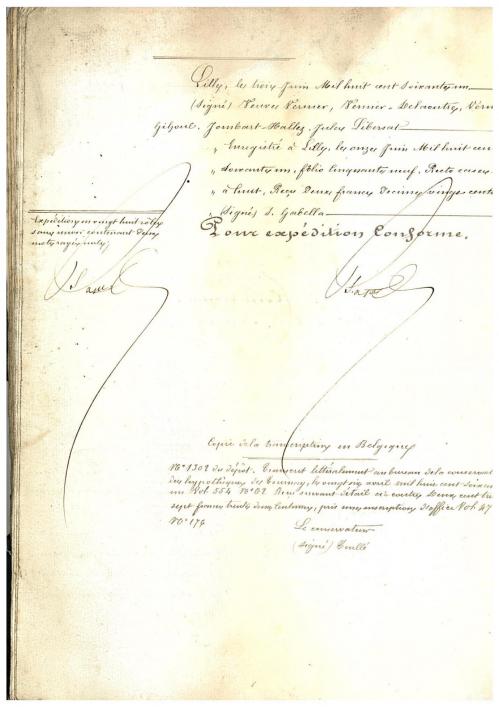 Lilly, les trois Juin Mil huit cent soixante un
(signé) Veuve Vernier, Vernier-Delaoutre, Vérni
Gihoul, Jombart-Hallez, Jules Libersat
„ Enregistré à Lilly, les onze Juin Mil huit cen
„ soixante un, folio cinquante neuf, Recto cases
„ à huit, Reçu Deux francs Décime vingt cent
„ signé S. Gabella
Pour expédition Conforme.
Expédition en vingt huit rôles
sans renvoi contenant deux
mots rayés nuls,
Copie de la transcription en Belgique
N° 1302 du dépôt. Transcrit littéralement au bureau de la conservat
des hypothèques de Tournay, le vingt six avril mil huit cent soixan
un Vol 554 N° 02. Reçu suivant détail ci contre Deux cent
sept francs trente deux Centimes, pris une inscription d'office Vol. 47
N° 174
Le conservateur
(signé)